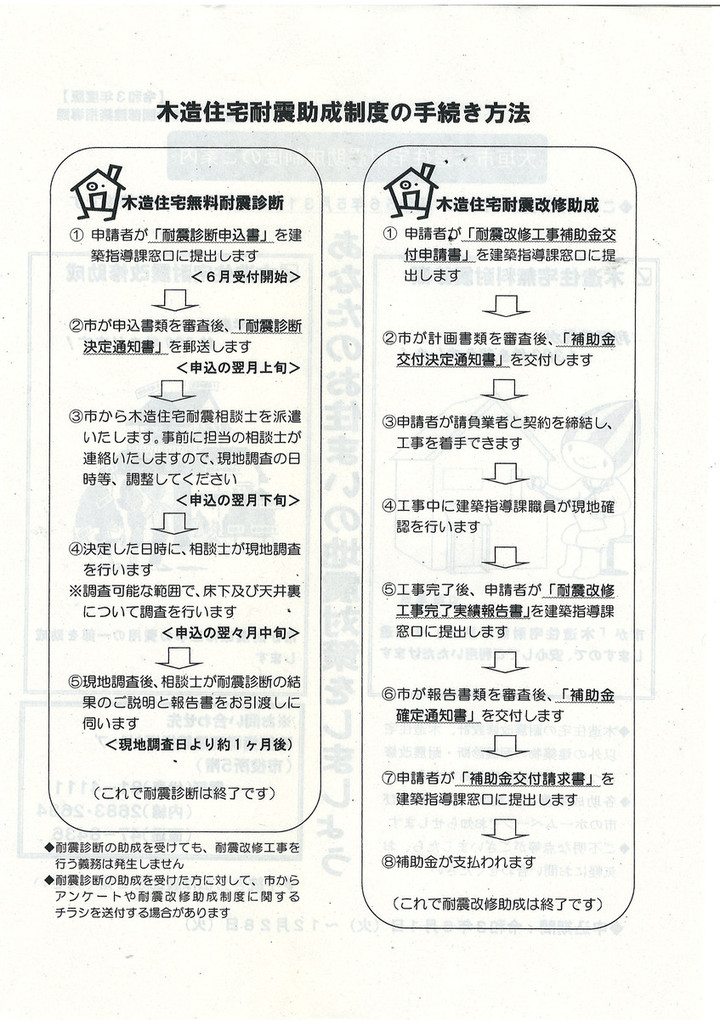 木造住宅耐震助成制度の手続き方法
木造住宅無料耐震診断
① 申請者が「耐震診断申込書」を建
築指導課窓口に提出します
＜６月受付開始＞
②市が申込書類を審査後、「耐震診断
決定通知書」を郵送します
＜申込の翌月上旬＞
③市から木造住宅耐震相談士を派遣
いたします。事前に担当の相談士が
連絡いたしますので、現地調査の日
時等、調整してください
＜申込の翌月下旬＞
④決定した日時に、相談士が現地調査
を行います
※調査可能な範囲で、床下及び天井裏
について調査を行います
＜申込の翌々月中旬＞
⑤現地調査後、相談士が耐震診断の結
果のご説明と報告書をお引渡しに
伺います
＜現地調査日より約１ヶ月後）
（これで耐震診断は終了です）
◆耐震診断の助成を受けても、耐震改修工事を
行う義務は発生しません
◆耐震診断の助成を受けた方に対して、市から
アンケートや耐震改修助成制度に関する
チラシを送付する場合があります
木造住宅耐震改修助成
① 申請者が「耐震改修工事補助金交
付申請書」を建築指導課窓口に提
出します
②市が計画書類を審査後、「補助金
交付決定通知書」を交付します
③申請者が請負業者と契約を締結し、
工事を着手できます
④工事中に建築指導課職員が現地確
認を行います
⑤工事完了後、申請者が「耐震改修
工事完了実績報告書」を建築指導課
窓口に提出します
⑥市が報告書類を審査後、「補助金
確定通知書」を交付します
⑦申請者が「補助金交付請求書」を
建築指導課窓口に提出します
⑧補助金が支払われます
（これで耐震改修助成は終了です）